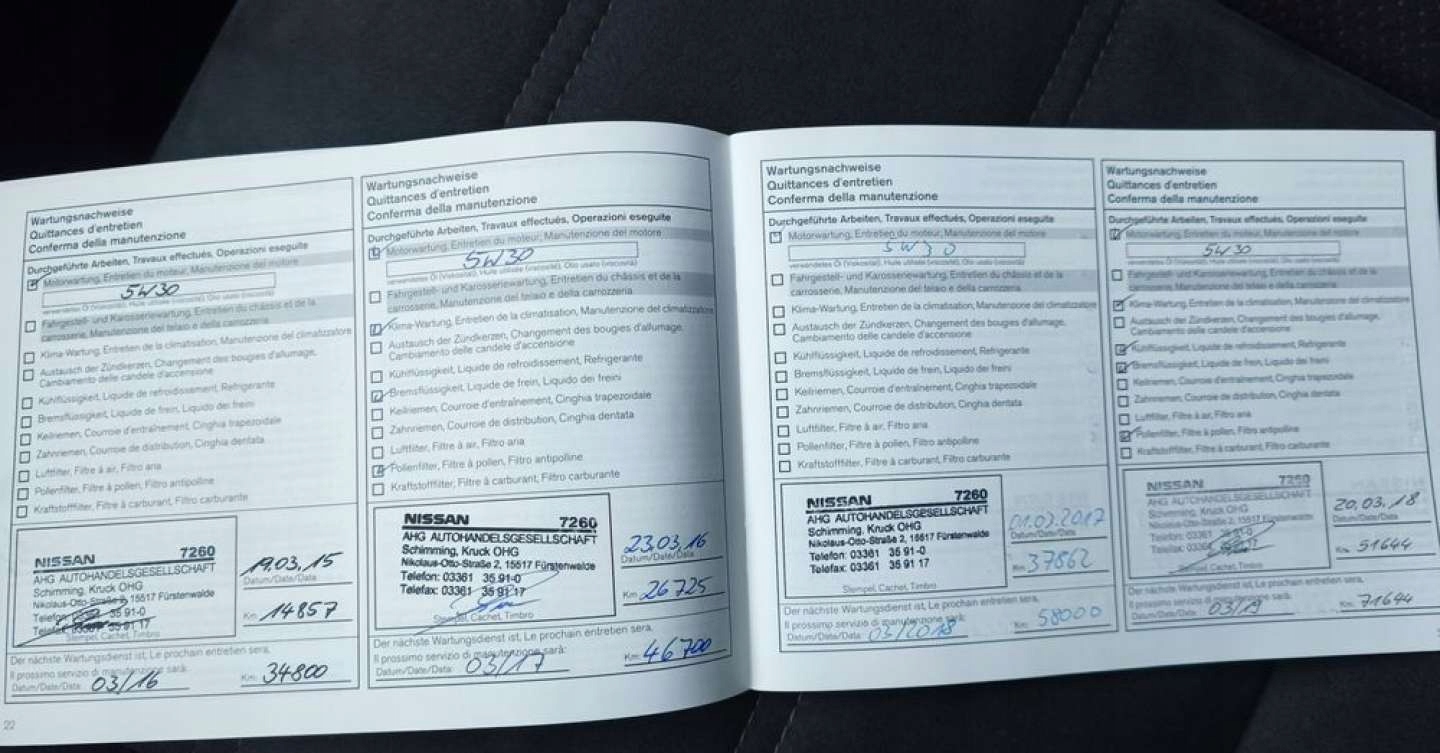 Wartungsnachweise
Quittances d'entretien
Conferma della manutenzione
Durchgeführte Arbeiten, Travaux effectués, Operazioni eseguite
Motorwartung, Entretien du moteur, Manutenzione del motore
5W30
verwendetes Öl (Viskosität), Huile utilisée (viscosité), Olio usato (viscosità)
Fahrgestell- und Karosseriewartung, Entretien du châssis et de la
carrosserie, Manutenzione del telaio e della carrozzeria
Klima-Wartung, Entretien de la climatisation, Manutenzione del climatizzatore
Austausch der Zündkerzen, Changement des bougies d'allumage,
Cambiamento delle candele d'accensione
Kühlflüssigkeit, Liquide de refroidissement, Refrigerante
Bremsflüssigkeit, Liquide de frein, Liquido dei freini
Keilriemen, Courroie d'entraînement, Cinghia trapezoidale
Zahnriemen, Courroie de distribution, Cinghia dentata
Luftfilter, Filtre à air, Filtro aria
Pollenfilter, Filtre à pollen, Filtro antipolline
Kraftstofffilter, Filtre à carburant, Filtro carburante
NISSAN 7260
AHG AUTOHANDELSGESELLSCHAFT
Schimming, Kruck OHG
Nikolaus-Otto-Straße 2, 15517 Fürstenwalde
Telefon: 03361 35 91-0
Telefax: 03361 35 91 17
Stempel, Cachet, Timbro
19.03.15
Datum/Date/Data
Km: 14857
Der nächste Wartungsdienst ist, Le prochain entretien sera,
Il prossimo servizio di manutenzione sarà:
Datum/Date/Data: 03/16 Km: 34800
22
Wartungsnachweise
Quittances d'entretien
Conferma della manutenzione
Durchgeführte Arbeiten, Travaux effectués, Operazioni eseguite
Motorwartung, Entretien du moteur, Manutenzione del motore
5W30
verwendetes Öl (Viskosität), Huile utilisée (viscosité), Olio usato (viscosità)
Fahrgestell- und Karosseriewartung, Entretien du châssis et de la
carrosserie, Manutenzione del telaio e della carrozzeria
Klima-Wartung, Entretien de la climatisation, Manutenzione del climatizzatore
Austausch der Zündkerzen, Changement des bougies d'allumage,
Cambiamento delle candele d'accensione
Kühlflüssigkeit, Liquide de refroidissement, Refrigerante
Bremsflüssigkeit, Liquide de frein, Liquido dei freini
Keilriemen, Courroie d'entraînement, Cinghia trapezoidale
Zahnriemen, Courroie de distribution, Cinghia dentata
Luftfilter, Filtre à air, Filtro aria
Pollenfilter, Filtre à pollen, Filtro antipolline
Kraftstofffilter, Filtre à carburant, Filtro carburante
NISSAN 7260
AHG AUTOHANDELSGESELLSCHAFT
Schimming, Kruck OHG
Nikolaus-Otto-Straße 2, 15517 Fürstenwalde
Telefon: 03361 35 91-0
Telefax: 03361 35 91 17
Stempel, Cachet, Timbro
23.03.16
Datum/Date/Data
Km: 26725
Der nächste Wartungsdienst ist, Le prochain entretien sera,
Il prossimo servizio di manutenzione sarà:
Datum/Date/Data: 03/17 Km: 46700
Wartungsnachweise
Quittances d'entretien
Conferma della manutenzione
Durchgeführte Arbeiten, Travaux effectués, Operazioni eseguite
Motorwartung, Entretien du moteur, Manutenzione del motore
5W30
verwendetes Öl (Viskosität), Huile utilisée (viscosité), Olio usato (viscosità)
Fahrgestell- und Karosseriewartung, Entretien du châssis et de la
carrosserie, Manutenzione del telaio e della carrozzeria
Klima-Wartung, Entretien de la climatisation, Manutenzione del climatizzatore
Austausch der Zündkerzen, Changement des bougies d'allumage,
Cambiamento delle candele d'accensione
Kühlflüssigkeit, Liquide de refroidissement, Refrigerante
Bremsflüssigkeit, Liquide de frein, Liquido dei freini
Keilriemen, Courroie d'entraînement, Cinghia trapezoidale
Zahnriemen, Courroie de distribution, Cinghia dentata
Luftfilter, Filtre à air, Filtro aria
Pollenfilter, Filtre à pollen, Filtro antipolline
Kraftstofffilter, Filtre à carburant, Filtro carburante
NISSAN 7260
AHG AUTOHANDELSGESELLSCHAFT
Schimming, Kruck OHG
Nikolaus-Otto-Straße 2, 15517 Fürstenwalde
Telefon: 03361 35 91-0
Telefax: 03361 35 91 17
Stempel, Cachet, Timbro
01.03.2017
Datum/Date/Data
Km: 37862
Der nächste Wartungsdienst ist, Le prochain entretien sera,
Il prossimo servizio di manutenzione sarà:
Datum/Date/Data: 03/2018 Km: 58000
Wartungsnachweise
Quittances d'entretien
Conferma della manutenzione
Durchgeführte Arbeiten, Travaux effectués, Operazioni eseguite
Motorwartung, Entretien du moteur, Manutenzione del motore
5W30
verwendetes Öl (Viskosität), Huile utilisée (viscosité), Olio usato (viscosità)
Fahrgestell- und Karosseriewartung, Entretien du châssis et de la
carrosserie, Manutenzione del telaio e della carrozzeria
Klima-Wartung, Entretien de la climatisation, Manutenzione del climatizzatore
Austausch der Zündkerzen, Changement des bougies d'allumage,
Cambiamento delle candele d'accensione
Kühlflüssigkeit, Liquide de refroidissement, Refrigerante
Bremsflüssigkeit, Liquide de frein, Liquido dei freini
Keilriemen, Courroie d'entraînement, Cinghia trapezoidale
Zahnriemen, Courroie de distribution, Cinghia dentata
Luftfilter, Filtre à air, Filtro aria
Pollenfilter, Filtre à pollen, Filtro antipolline
Kraftstofffilter, Filtre à carburant, Filtro carburante
NISSAN 7260
AHG AUTOHANDELSGESELLSCHAFT
Schimming, Kruck OHG
Nikolaus-Otto-Straße 2, 15517 Fürstenwalde
Telefon: 03361 35 91-0
Telefax: 03361
Stempel, Cachet, Timbro
20.03.18
Datum/Date/Data
Km: 51644
Der nächste Wartungsdienst ist, Le prochain entretien sera,
Il prossimo servizio di manutenzione sarà:
Datum/Date/Data: 03/19 Km: 71644